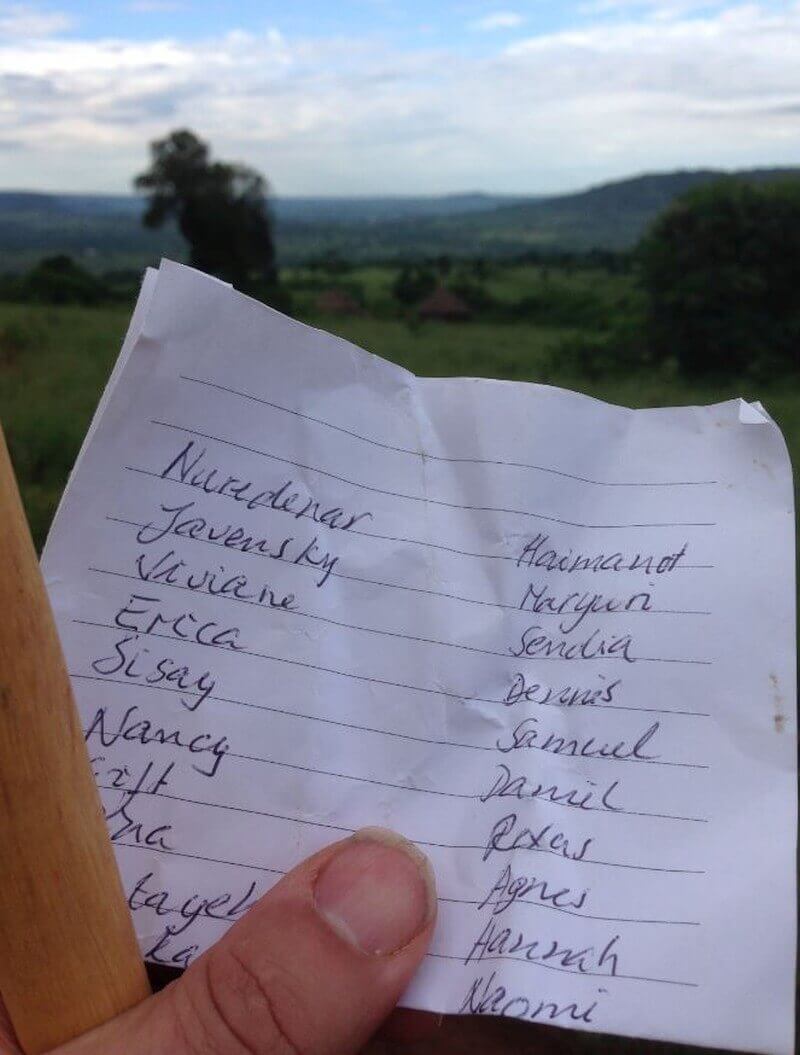 Nuredenar
Javensky
Viviane
Erica
Sisay
Nancy
Haimanot
Maryuri
Sendia
Dennis
Samuel
Daniel
Roxas
Agnes
Hannah
Naomi